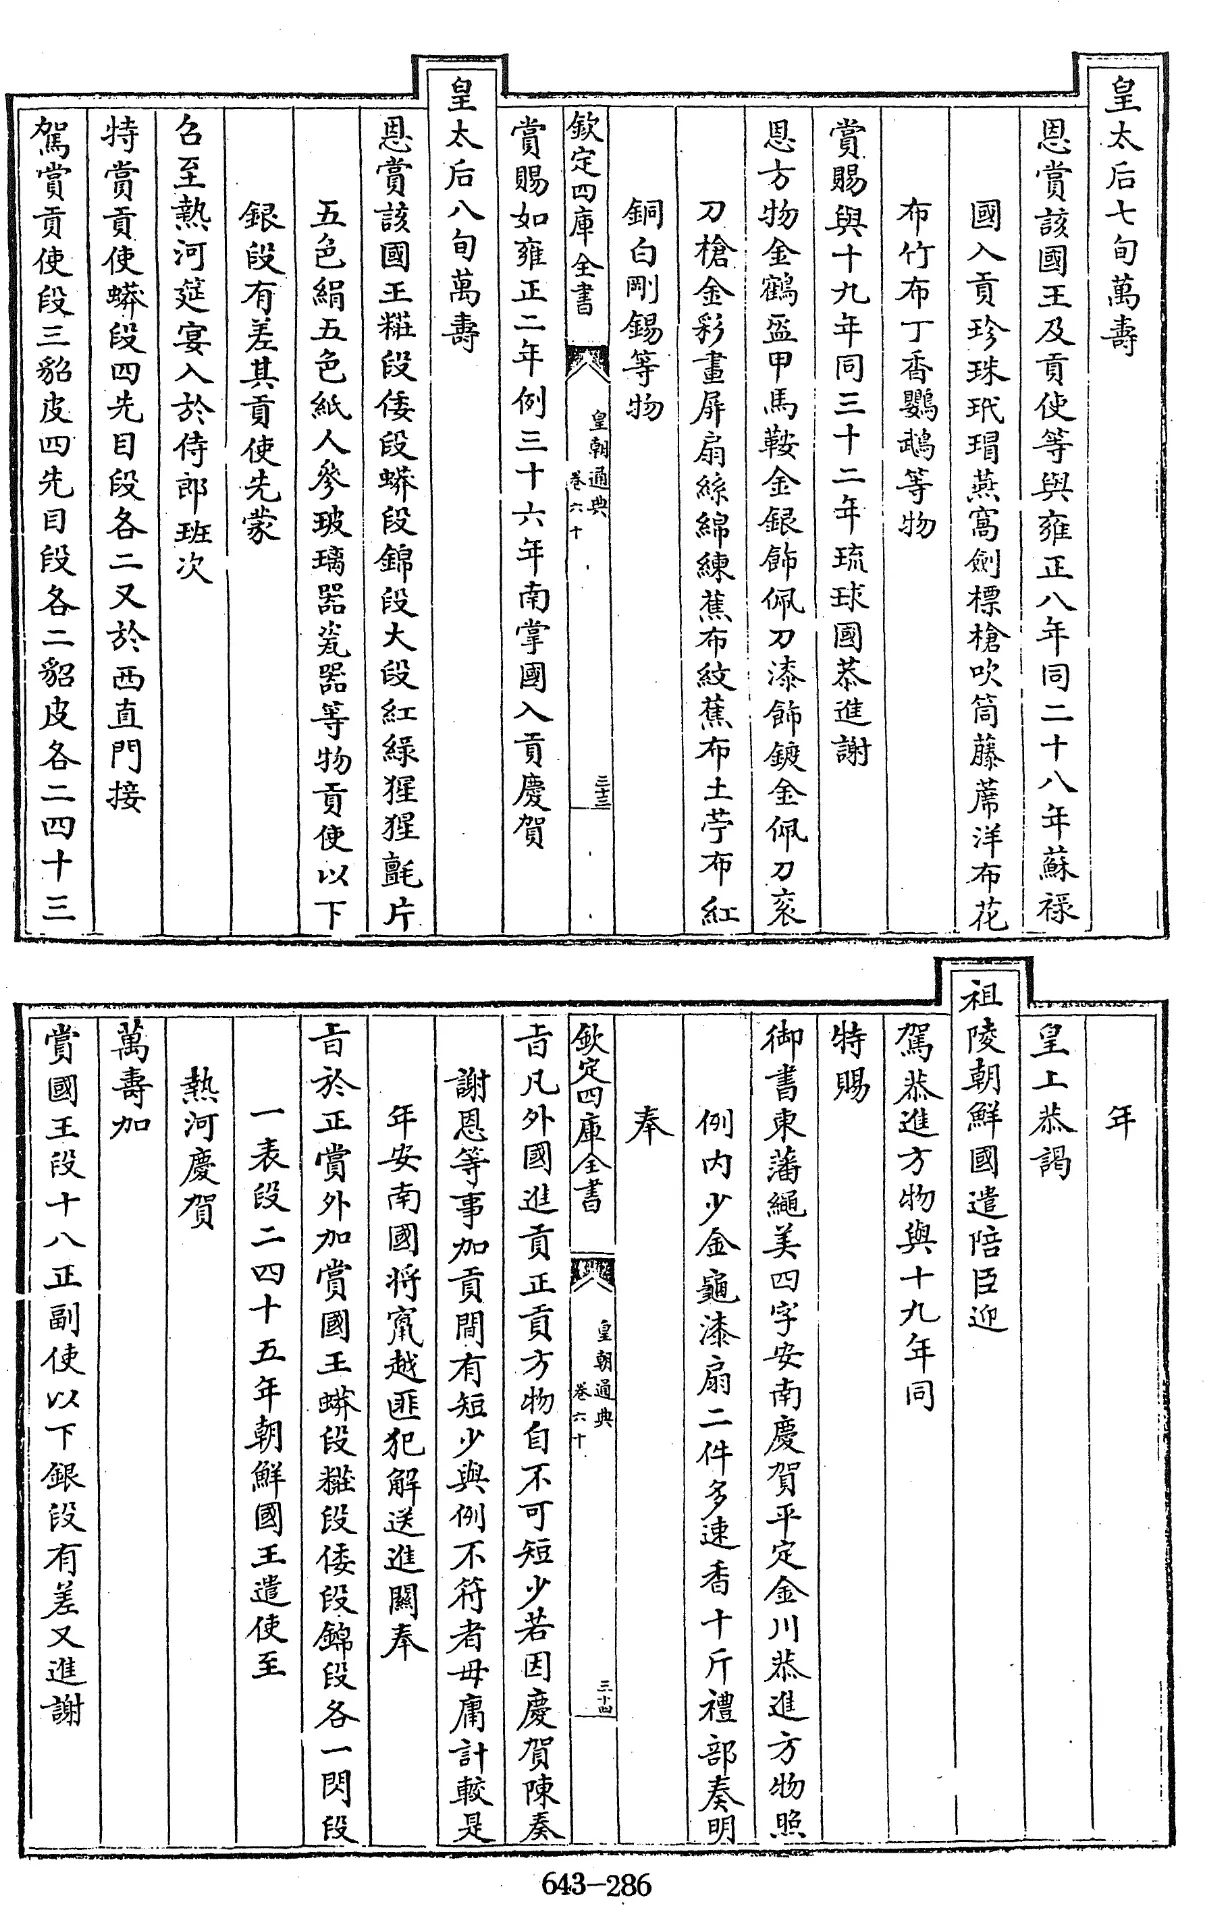 皇太后七旬萬壽
恩賞該國王及貢使等與雍正八年同二十八年蘇祿
國入貢珍珠玳瑁燕窩劍標槍吹筒藤蓆洋布花
布竹布丁香鸚鵡等物
賞賜與十九年同三十二年琉球國恭進謝
恩方物金鶴盔甲馬鞍金銀飾佩刀漆飾鍍金佩刀衮
刀槍金彩畫屏扇絲綿練蕉布紋蕉布土苧布紅
銅白剛錫等物
欽定四庫全書
皇朝通典
卷六十
三十三
賞賜如雍正二年例三十六年南掌國入貢慶賀
皇太后八旬萬壽
恩賞該國王粧段倭段蟒段錦段大段紅綠猩猩氈片
五色絹五色紙人參玻璃器瓷器等物貢使以下
銀段有差其貢使先蒙
召至熱河筵宴入於侍郎班次
特賞貢使蟒段四先目段各二又於西直門接
駕賞貢使段三貂皮四先目段各二貂皮各二四十三
年
皇上恭謁
祖陵朝鮮國遣陪臣迎
駕恭進方物與十九年同
特賜
御書東藩繩美四字安南慶賀平定金川恭進方物照
例內少金龜漆扇二件多速香十斤禮部奏明
奉
欽定四庫全書
皇朝通典
卷六十
三十四
旨凡外國進貢正貢方物自不可短少若因慶賀陳奏
謝恩等事加貢間有短少與例不符者毋庸計較是
年安南國將竄越匪犯解送進關奉
旨於正賞外加賞國王蟒段粧段倭段錦段各一閃段
一表段二四十五年朝鮮國王遣使至
熱河慶賀
萬壽加
賞國王段十八正副使以下銀段有差又進謝
643-286